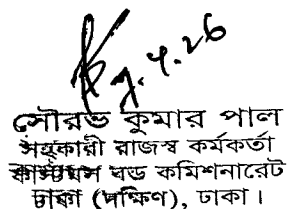 ৯.৭.২৫
সৌরভ কুমার পাল
সহকারী রাজস্ব কর্মকর্তা
কাস্টমস বন্ড কমিশনারেট
ঢাকা (দক্ষিণ), ঢাকা।